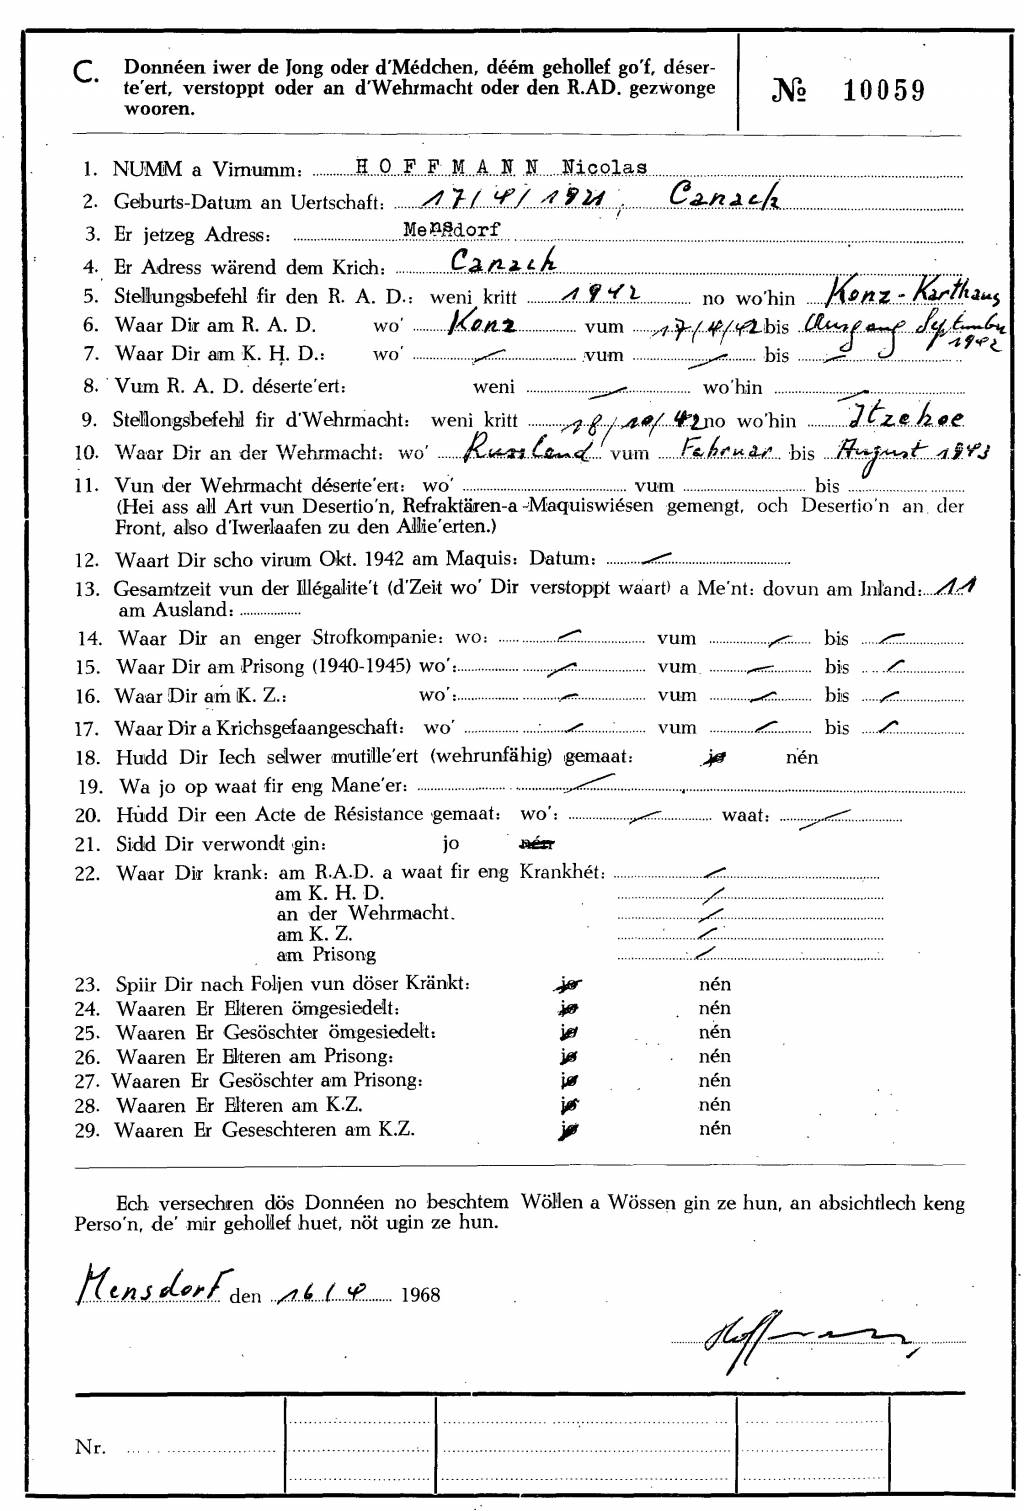 C. Donnéen iwer de Jong oder d'Médchen, déém gehollef go'f, déser-
te'ert, verstoppt oder an d'Wehrmacht oder den R.AD. gezwonge
wooren.
№ 10059
1. NUMM a Virnumm: HOFFMANN Nicolas
2. Geburts-Datum an Uertschaft: 17/4/1921, Canach
3. Er jetzeg Adress: Mensdorf
4. Er Adress wärend dem Krich: Canach
5. Stellungsbefehl fir den R. A. D.: weni kritt 1942 no wo'hin Konz-Karthaus
6. Waar Dir am R. A. D. wo' Konz vum 17/4/42 bis Ausgang September
1942
7. Waar Dir am K. H. D.: wo' / vum / bis /
8. Vum R. A. D. déserte'ert: weni / wo'hin /
9. Stellongsbefehl fir d'Wehrmacht: weni kritt 18/10/42 no wo'hin Itzehoe
10. Waar Dir an der Wehrmacht: wo' Russland vum Februar bis August 1943
11. Vun der Wehrmacht déserte'ert: wo' vum bis
(Hei ass all Art vun Desertio'n, Refraktären-a -Maquiswiésen gemengt, och Desertio'n an der
Front, also d'Iwerlaafen zu den Allie'erten.)
12. Waart Dir scho virum Okt. 1942 am Maquis: Datum: /
13. Gesamtzeit vun der Illégalite't (d'Zeit wo' Dir verstoppt waart) a Me'nt: dovun am Inland: 11
am Ausland:
14. Waar Dir an enger Strofkompanie: wo: / vum / bis /
15. Waar Dir am Prisong (1940-1945) wo': / vum / bis /
16. Waar Dir am K. Z.: wo': / vum / bis /
17. Waar Dir a Krichsgefaangeschaft: wo' / vum / bis /
18. Hudd Dir Iech selwer mutille'ert (wehrunfähig) gemaat: jo nén
19. Wa jo op waat fir eng Mane'er: /
20. Hudd Dir een Acte de Résistance gemaat: wo': / waat: /
21. Sidd Dir verwondt gin: jo nén
22. Waar Dir krank: am R.A.D. a waat fir eng Krankhét: /
am K. H. D. /
an der Wehrmacht. /
am K. Z. /
am Prisong /
23. Spiir Dir nach Foljen vun döser Kränkt: jo nén
24. Waaren Er Elteren ömgesiedelt: jo nén
25. Waaren Er Gesöschter ömgesiedelt: jo nén
26. Waaren Er Elteren am Prisong: jo nén
27. Waaren Er Gesöschter am Prisong: jo nén
28. Waaren Er Elteren am K.Z. jo nén
29. Waaren Er Geseschteren am K.Z. jo nén
Ech versechren dös Donnéen no beschtem Wöllen a Wössen gin ze hun, an absichtlech keng
Perso'n, de' mir gehollef huet, nöt ugin ze hun.
Mensdorf den 16/4 1968
Hoffmann
Nr.